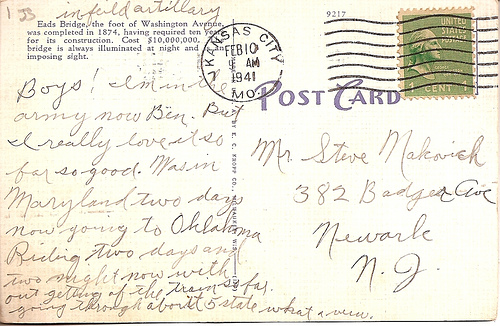 1 JJ in field artillary
Eads Bridge, the foot of Washington Avenue,
was completed in 1874, having required ten years
for its construction. Cost $10,000,000.
bridge is always illuminated at night and an
imposing sight.
KANSAS CITY
FEB 10
AM
1941
MO.
9217
UNITED
STATES
POSTAGE
1 CENT 1
POST CARD
BY E. C. KROPP CO., MILWAUKEE, WIS.
Boys! I'm in the
army now Ben. But
I really love it so
far so good. Was in
Maryland two days
now going to Oklahoma
Riding two days and
two night now with
out getting of the train so far.
going through about 5 state what a view.
Mr. Steve Makovich
382 Badger Ave
Newark
N. J.